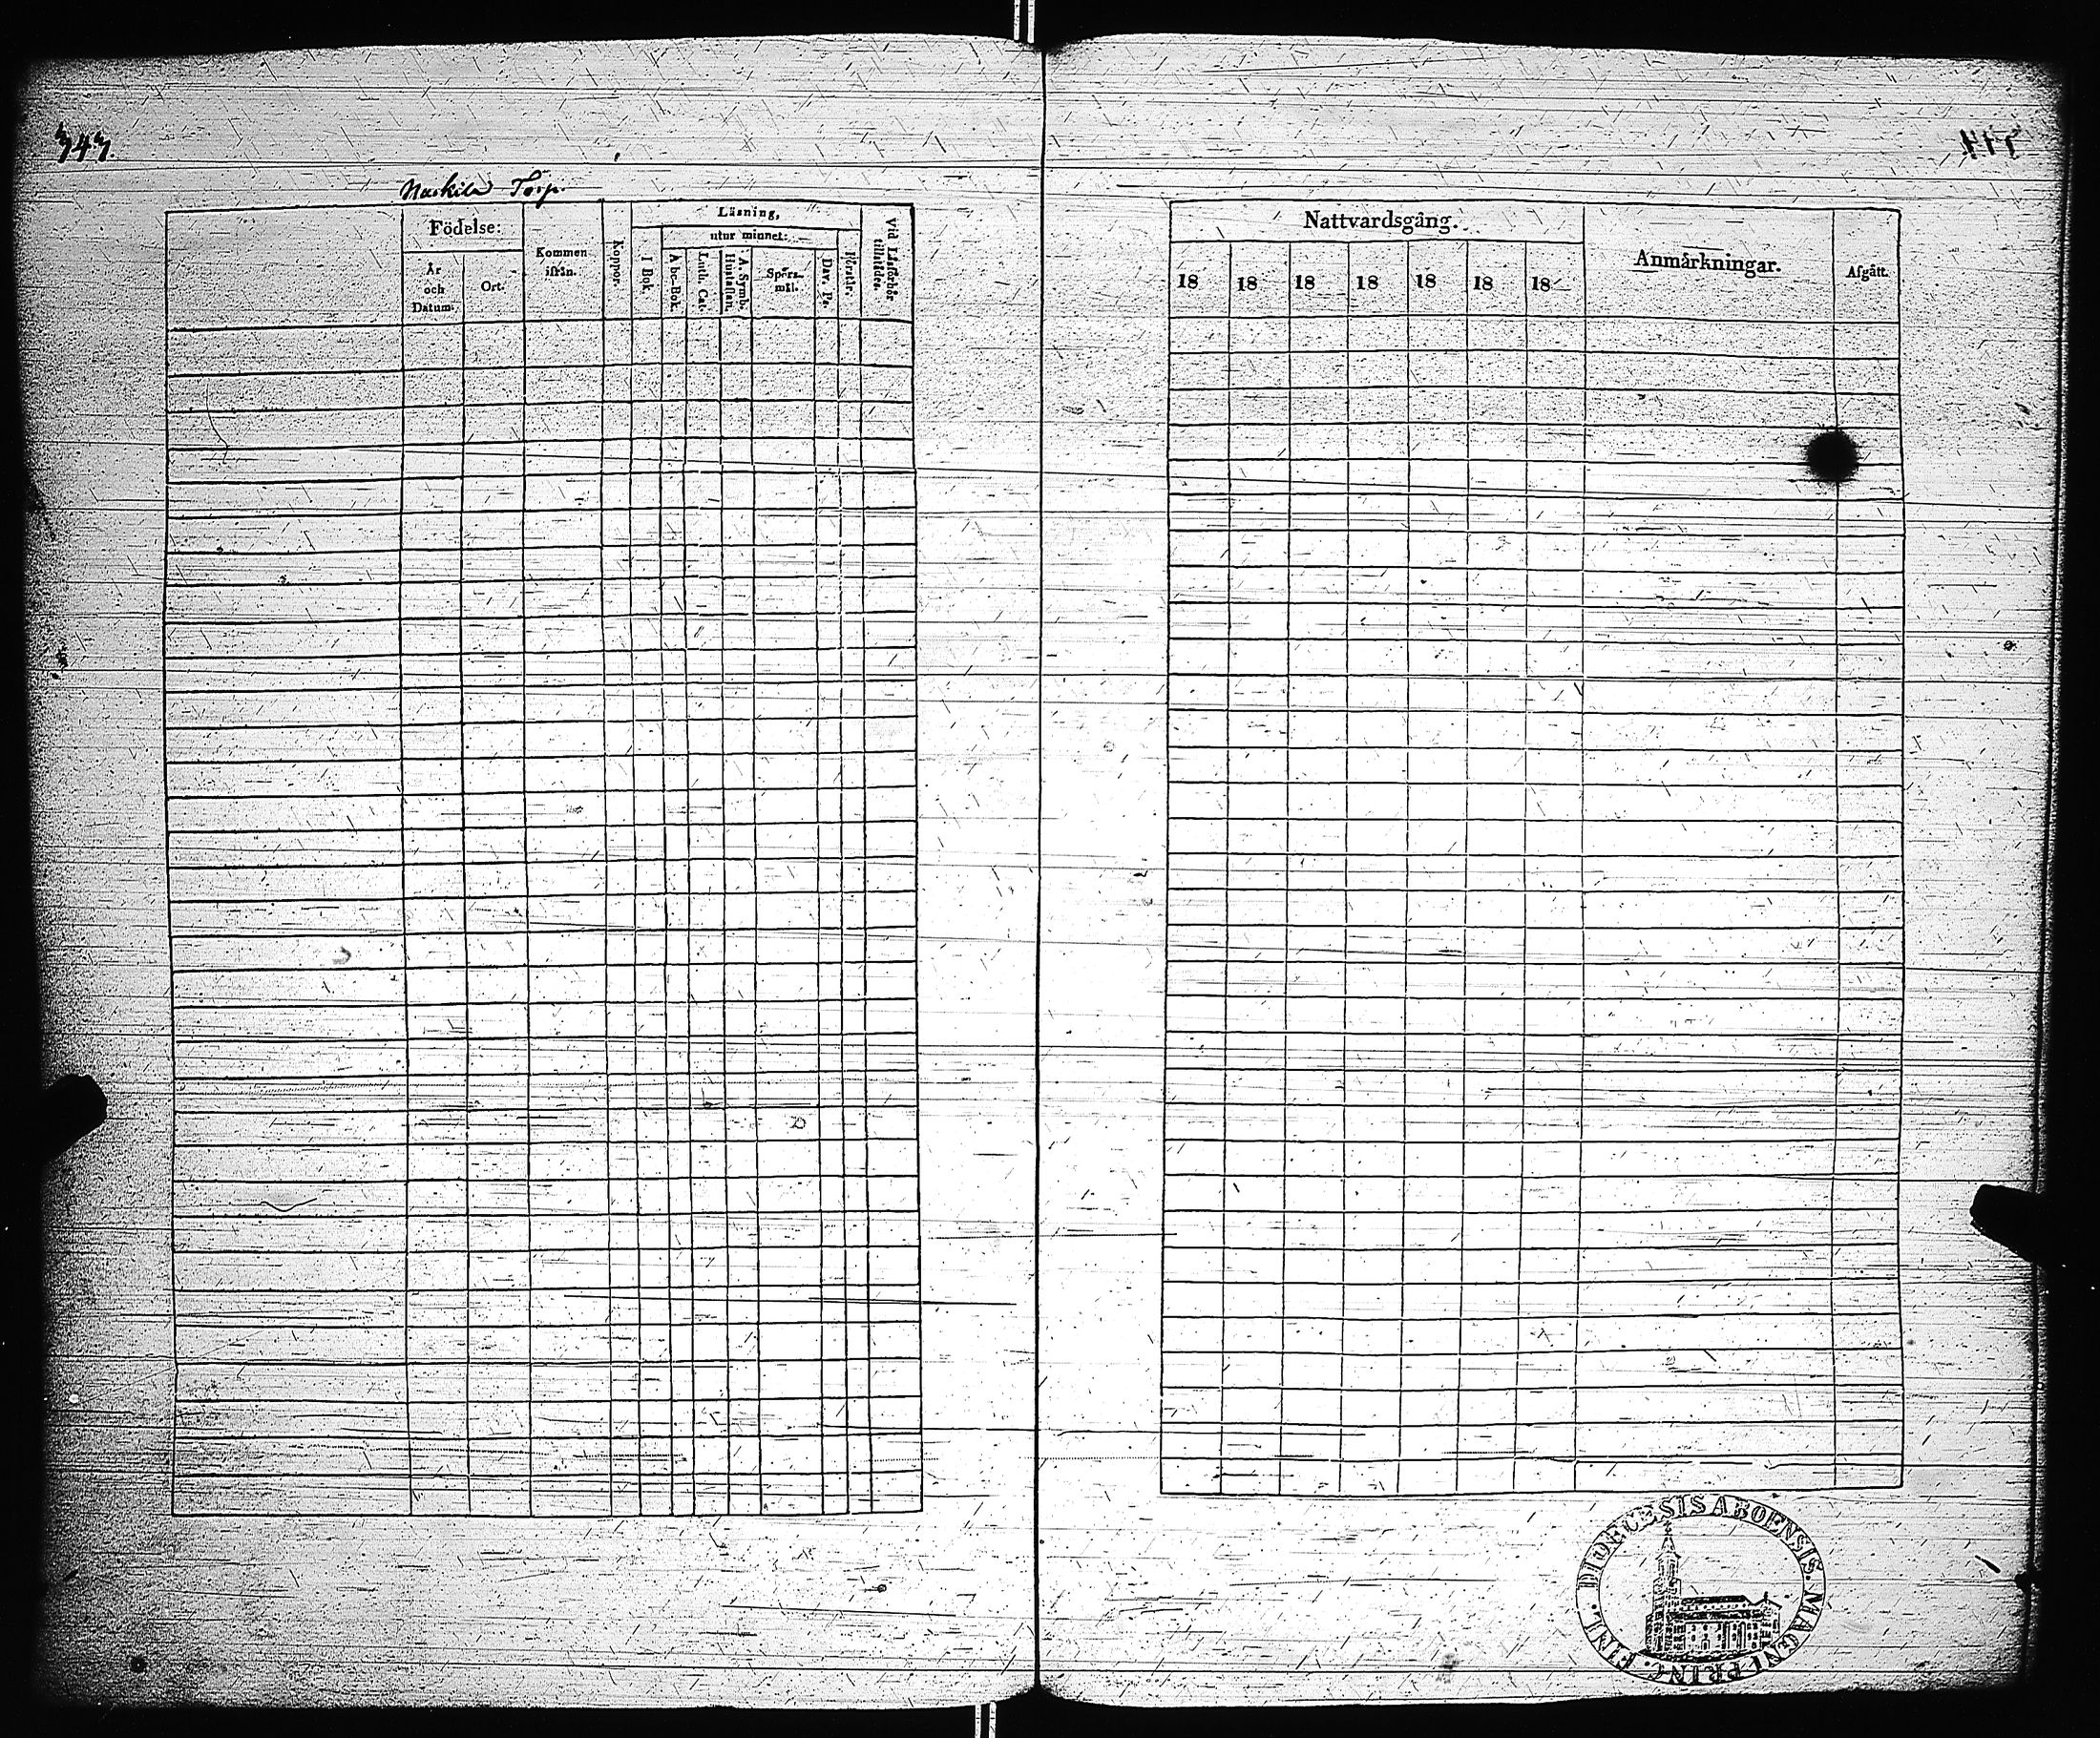 343.
Naskila Torp.
Födelse:
År
och
Datum.
Ort.
Kommen
ifrån.
Koppor.
Läsning,
I Bok.
utur minnet:
A bc-Bok.
Luth. Cat.
A. Symb.
Hustaflan.
Spörs-
mål.
Dav. Ps.
Förstår.
Vid Läsförhör
tillstädes.
Nattvardsgång.
18 18 18 18 18 18 18
Anmärkningar.
Afgått.
DIOECESIS ABOENSIS. MAGNI PRINC. FINL.